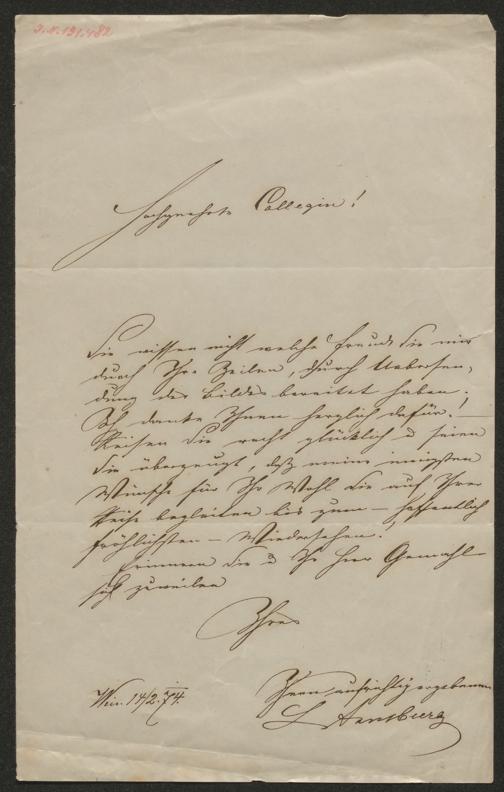 I.N. 191.482
Hochgeehrte Collegin!
Sie wissen nicht welche Freude Sie mir
durch Ihre Zeilen, durch Uebersen-
dung des Bildes bereitet haben.
Ich danke Ihnen herzlich dafür! —
Reisen Sie recht glücklich u seien
Sie überzeugt, daß meine innigsten
Wünsche für Ihr Wohl Sie auf Ihrer
Reise begleiten bis zum — hoffentlich
fröhlichsten — Wiedersehen!
Erinnern Sie u Ihr Herr Gemahl
sich zuweilen
Ihres
Ihnen aufrichtig ergebenen
Wien. 14/2.74.
L Arnsburg